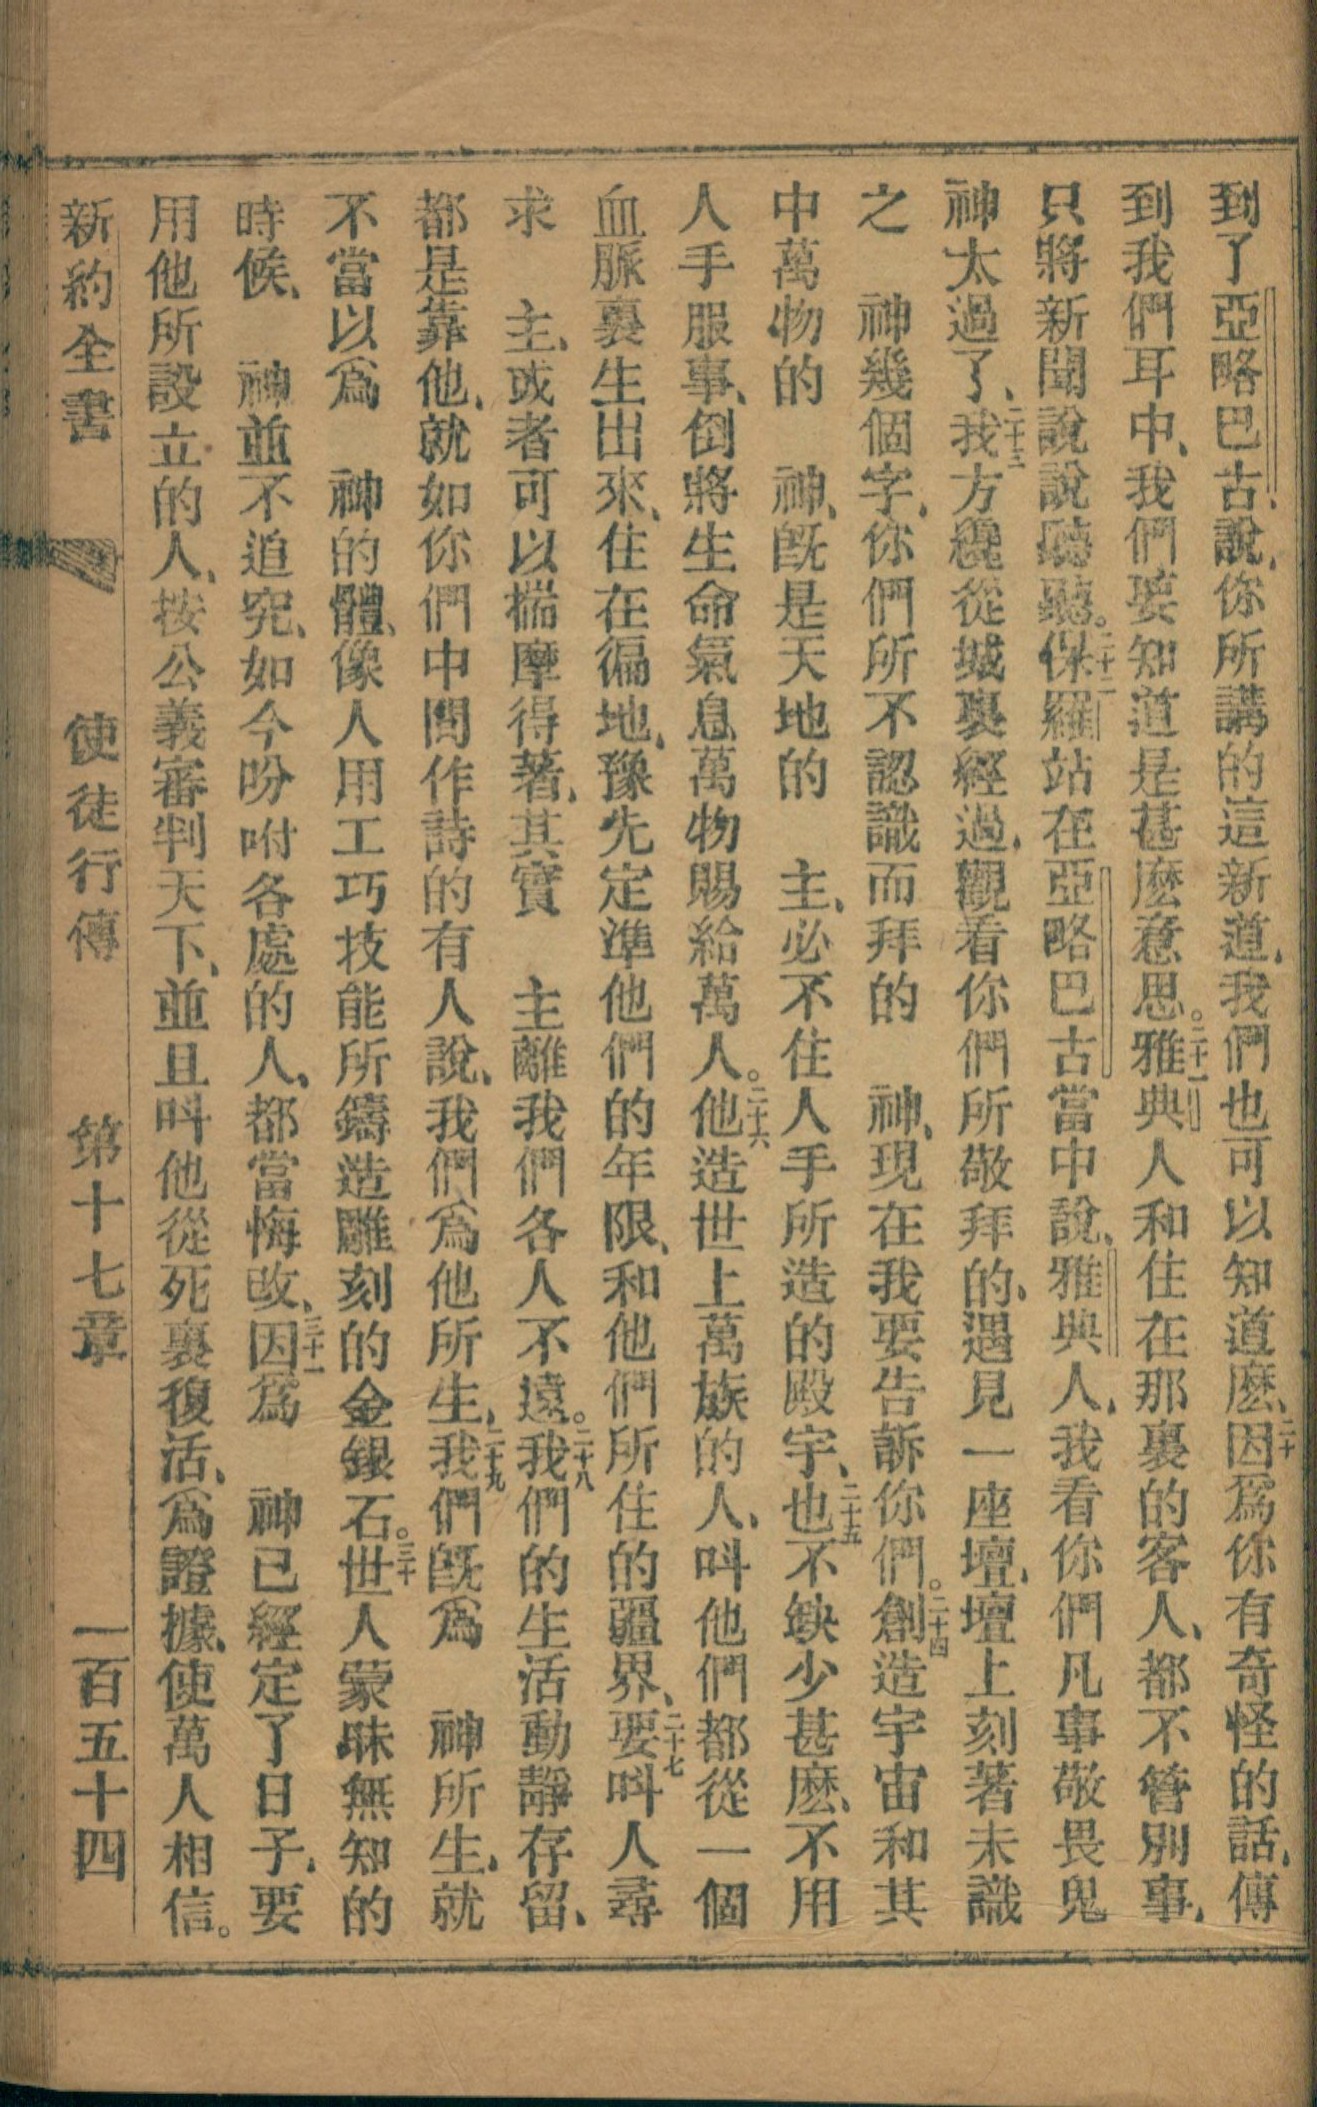 到了亞略巴古、說、你所講的這新道、我們也可以知道麽、二十因爲你有奇怪的話、傳
到我們耳中、我們要知道是甚麽意思。二十一雅典人和住在那裏的客人、都不管別事、
只將新聞說說聽聽。二十二保羅站在亞略巴古當中說、雅典人、我看你們凡事敬畏鬼
神太過了、二十三我方纔從城裏經過、觀看你們所敬拜的、遇見一座壇、壇上刻著未識
之　神幾個字、你們所不認識而拜的　神、現在我要告訴你們。二十四創造宇宙和其
中萬物的　神、旣是天地的　主、必不住人手所造的殿宇、二十五也不缺少甚麽、不用
人手服事、倒將生命氣息萬物賜給萬人。二十六他造世上萬族的人、呌他們都從一個
血脈裏生出來、住在徧地、豫先定準他們的年限、和他們所住的疆界、二十七要呌人尋
求　主、或者可以揣摩得著、其實　主離我們各人不遠。二十八我們的生活動靜存留、
都是靠他、就如你們中間作詩的有人說、我們爲他所生、二十九我們旣爲　神所生、就
不當以爲　神的體、像人用工巧技能所鑄造雕刻的金銀石。三十世人蒙昧無知的
時候、　神並不追究、如今吩咐各處的人、都當悔改、三十一因爲　神已經定了日子、要
用他所設立的人、按公義審判天下、並且呌他從死裏復活、爲證據、使萬人相信。
新約全書　使徒行傳　第十七章　一百五十四